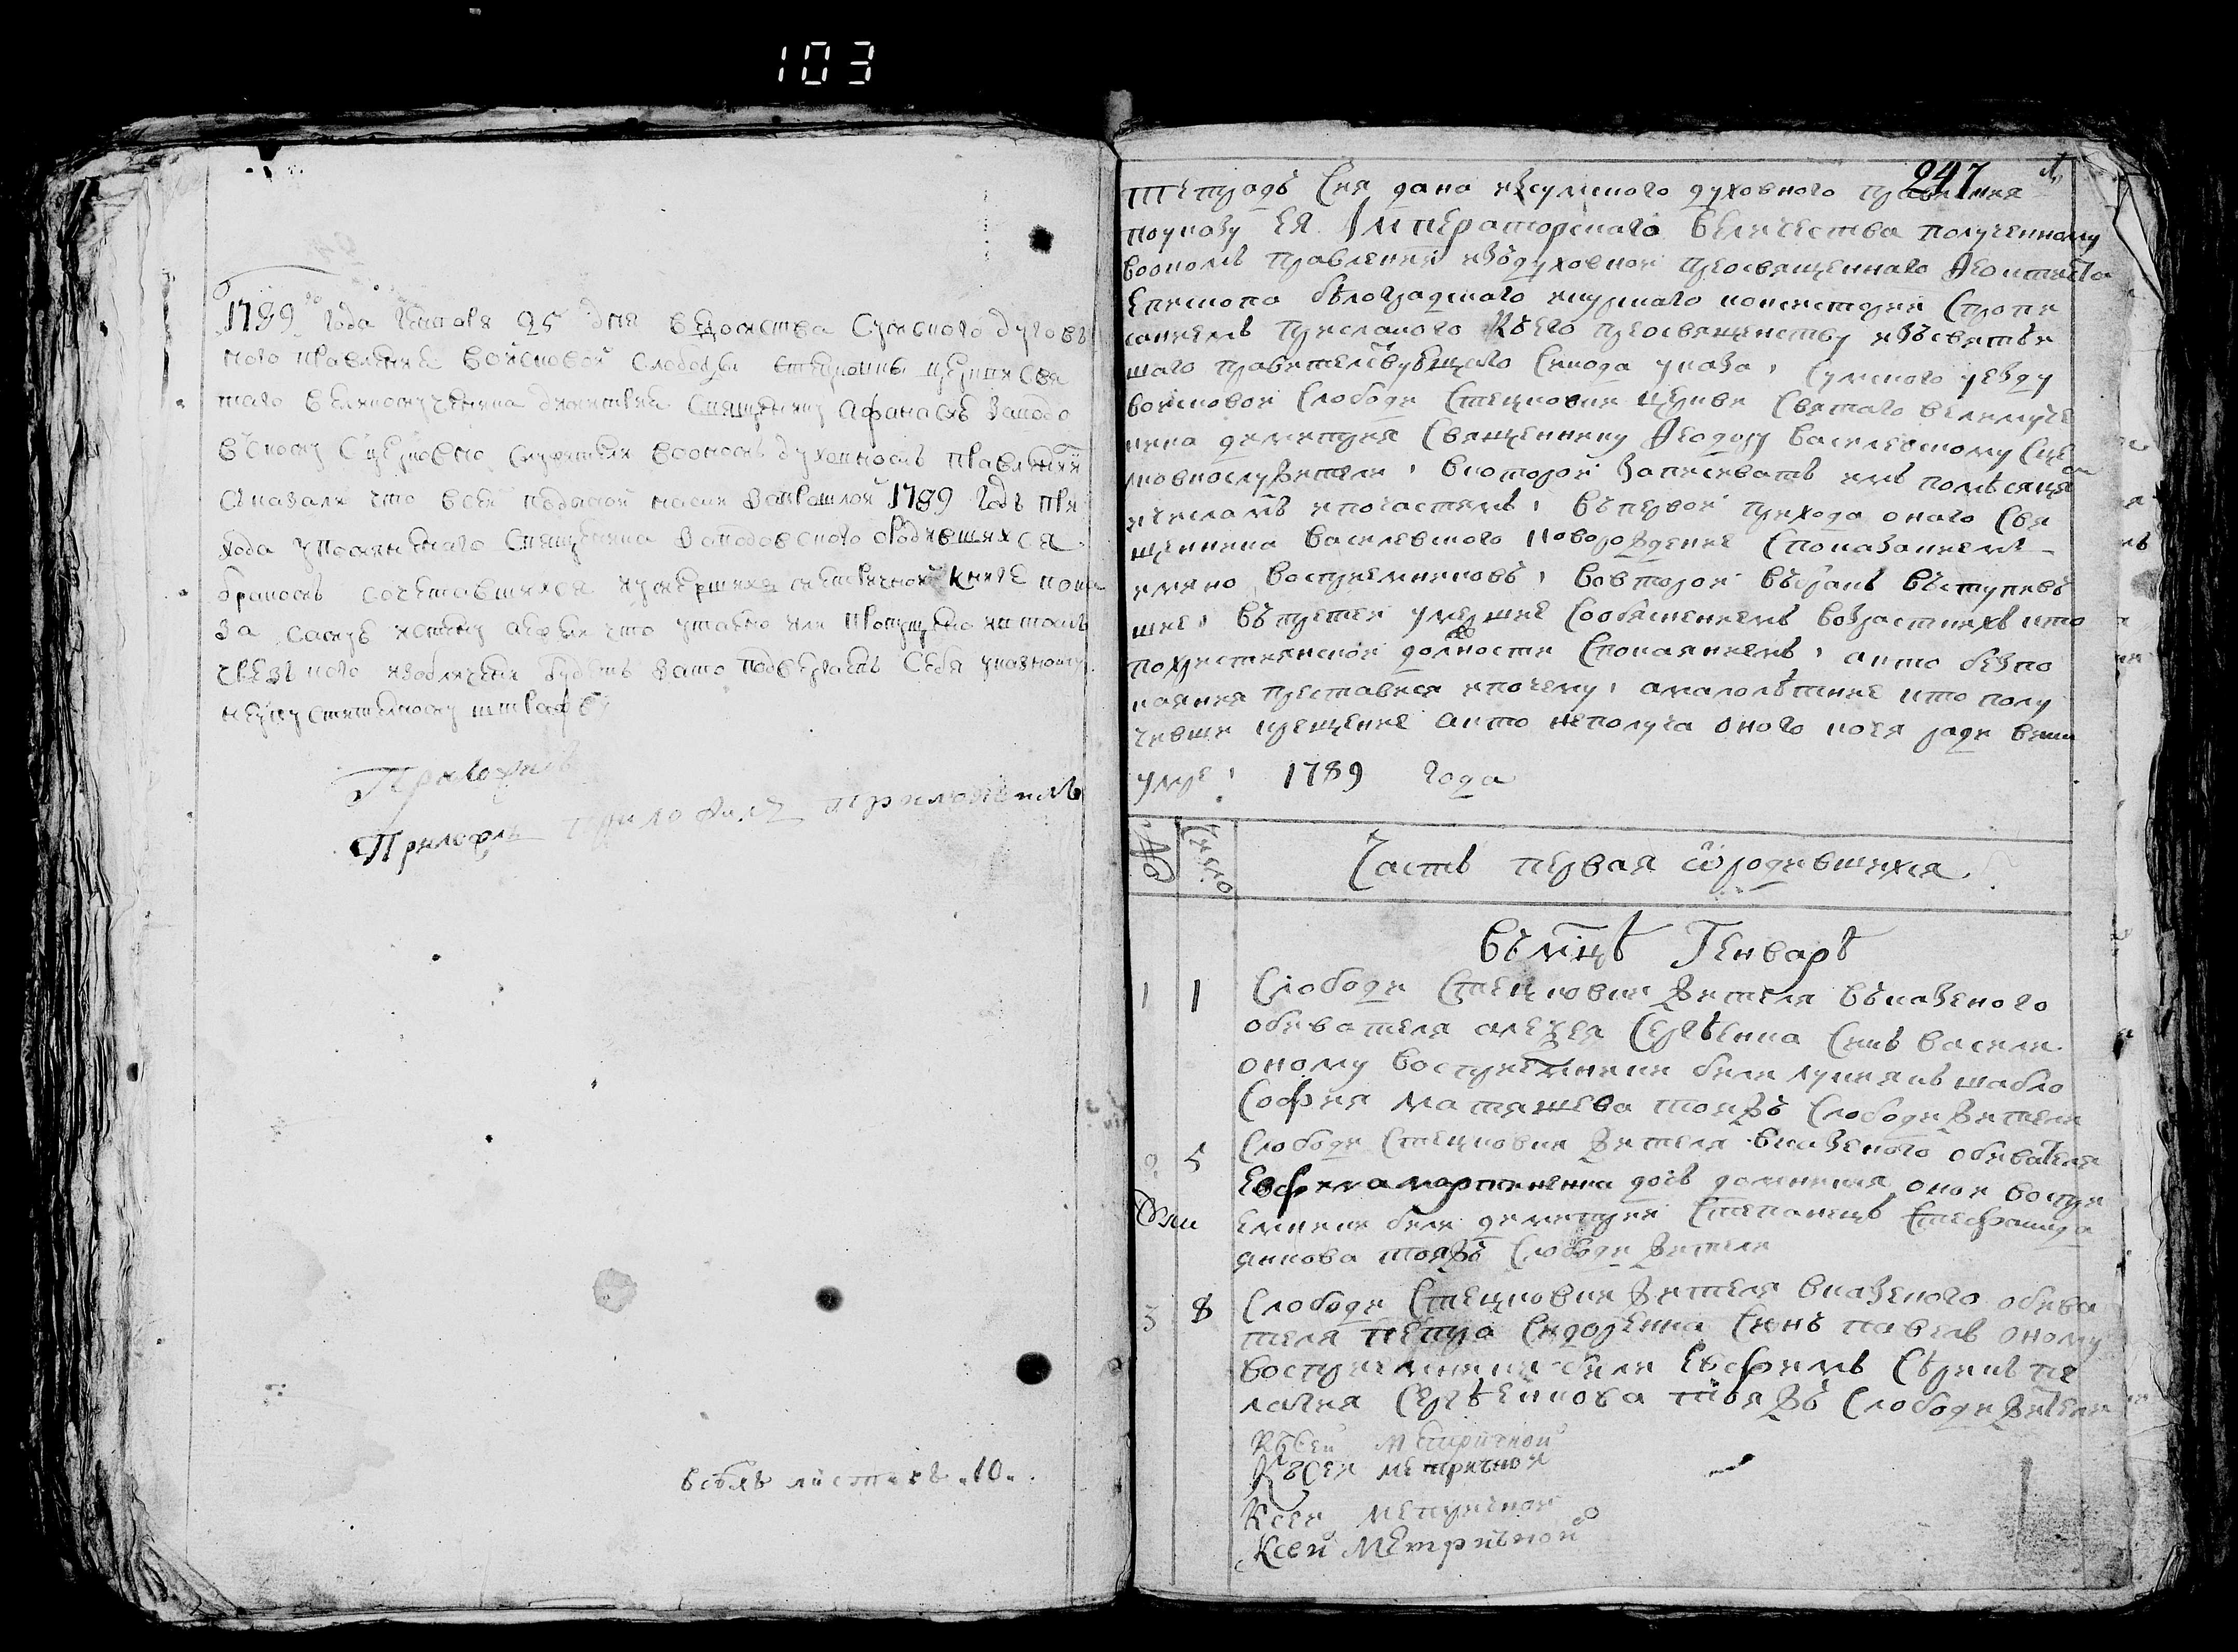 103
1789 года Генваря 25 дня ведомства Сумского духов
ного правления войсковой слободы Стецковки церкви Свя
таго великомученика Димитрия Священнику Афанасей
Сцерковно служители воономъ духовномъ правлении
сказали что всей поданой нами запрошлой 1789 годъ при
хода упоминаемаго Священника ородившихся
бракомъ сочетавшихся иумершихъ метричной книге пока
за самую истину аежели что утаено или пропущено
чрезъ кого изобличени будемъ зато подвергаемъ себя указному
неупустительному штрафу
всехъ листовъ 10
247
Тетрадь Сия дана изсумского духовного правления
поуказу ЕЯ Императорского Величества полученному
воономъ правлении издуховной преосвященнаго Феоктиста
Епископа белоградского икурскаго консистории Спропи
саниемъ присланого Къего преосвященству изъсвятей
шаго правителствующаго Синода указа, Сумского уезду
войсковой Слободи Стецковки церкви Святаго великомуче
ника димитрия Священнику Феодору Василевскому Сце
ковнослужители, вкоторой записывать имъ помесяца
ичисламъ ипочастямъ, въпервой прихода онаго Свя
щенника Василевского новорождение Споказаниемъ
имяно восприемниковъ, вовторой въбракъ въступивъ
шие, въпретей умершие Собясненіемъ возрастнихъ кто
похристиянской должности Спокаяниемъ, акто безпо
каяния преставися ипочему, амалолетние кто полу
чивши крещение акто неполуча оного коея ради вини
умре, 1789 года
№ Число Часть первая ородившихся
Въмцѣ Генварѣ
1 1 Слободи Стецковки жителя въказеного
обивателя алекся Сергѣенка Синъ Васили
оному восприемники били лукиянъ шабло
София матяшева тояжъ Слободи жители
2 5 Слободи Стецковки жителя вказеного обивателя
Евфима мартиненка дочь домникия оной воспри
емники били димитрий Степанецъ Стефанида
янкова тояжъ Слободи жители
3 8 Слободи Стецковки жителя вказеного обива
теля Петра Сидоренка Синъ павелъ оному
восприемники били Евфимъ Сѣрикъ пе
лагия Сергѣенкова тояжъ Слободи жители
Къ Сей метричной
Къ Сей метричной
Ксей метричной
Ксей Метричной